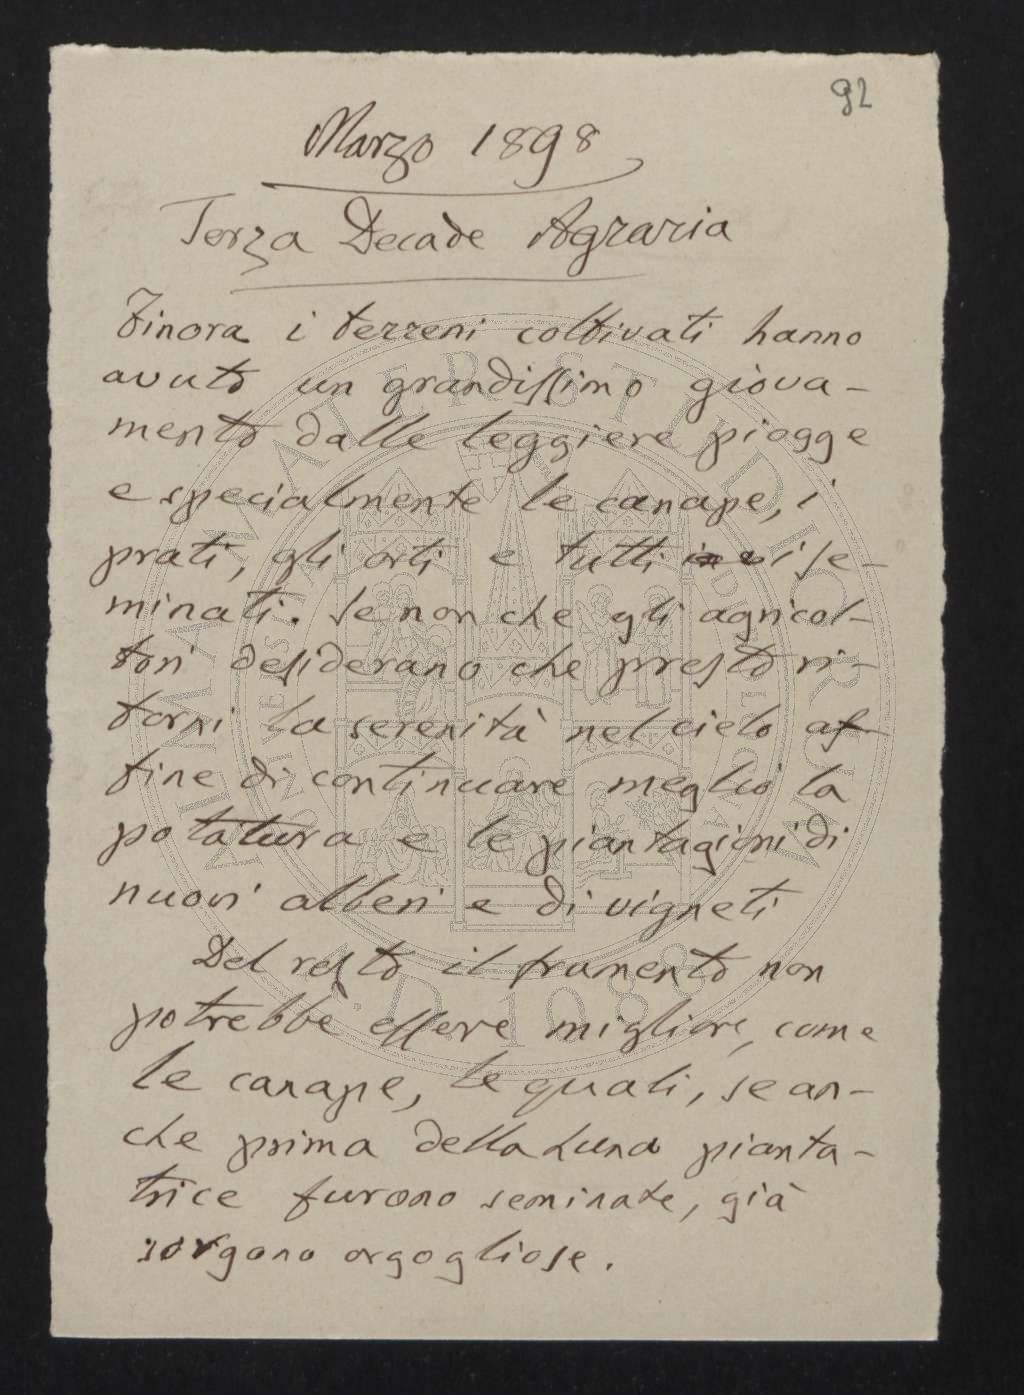 92
Marzo 1898
Terza Decade Agraria
Finora i terreni coltivati hanno
avuto un grandissimo giova-
mento dalle leggiere piogge
e specialmente le canape, i
prati, gli orti e tutti i se-
minati. Se non che gli agricol-
tori desiderano che presto ri-
torni la serenità nel cielo af-
fine di continuare meglio la
potatura e le piantagioni di
nuovi alberi e di vigneti
Del resto il frumento non
potrebbe essere migliore, come
le canape, le quali, se an-
che prima della Luna pianta-
trice furono seminate, già
sorgono orgogliose.
ALMA MATER STUDIORUM
A.D. 1088